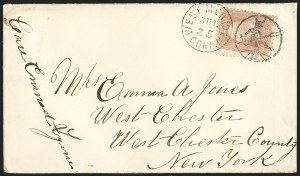 WEST MERI
25
CONN
Mrs Emma A Jones
West Chester
West Chester County
New York
Care